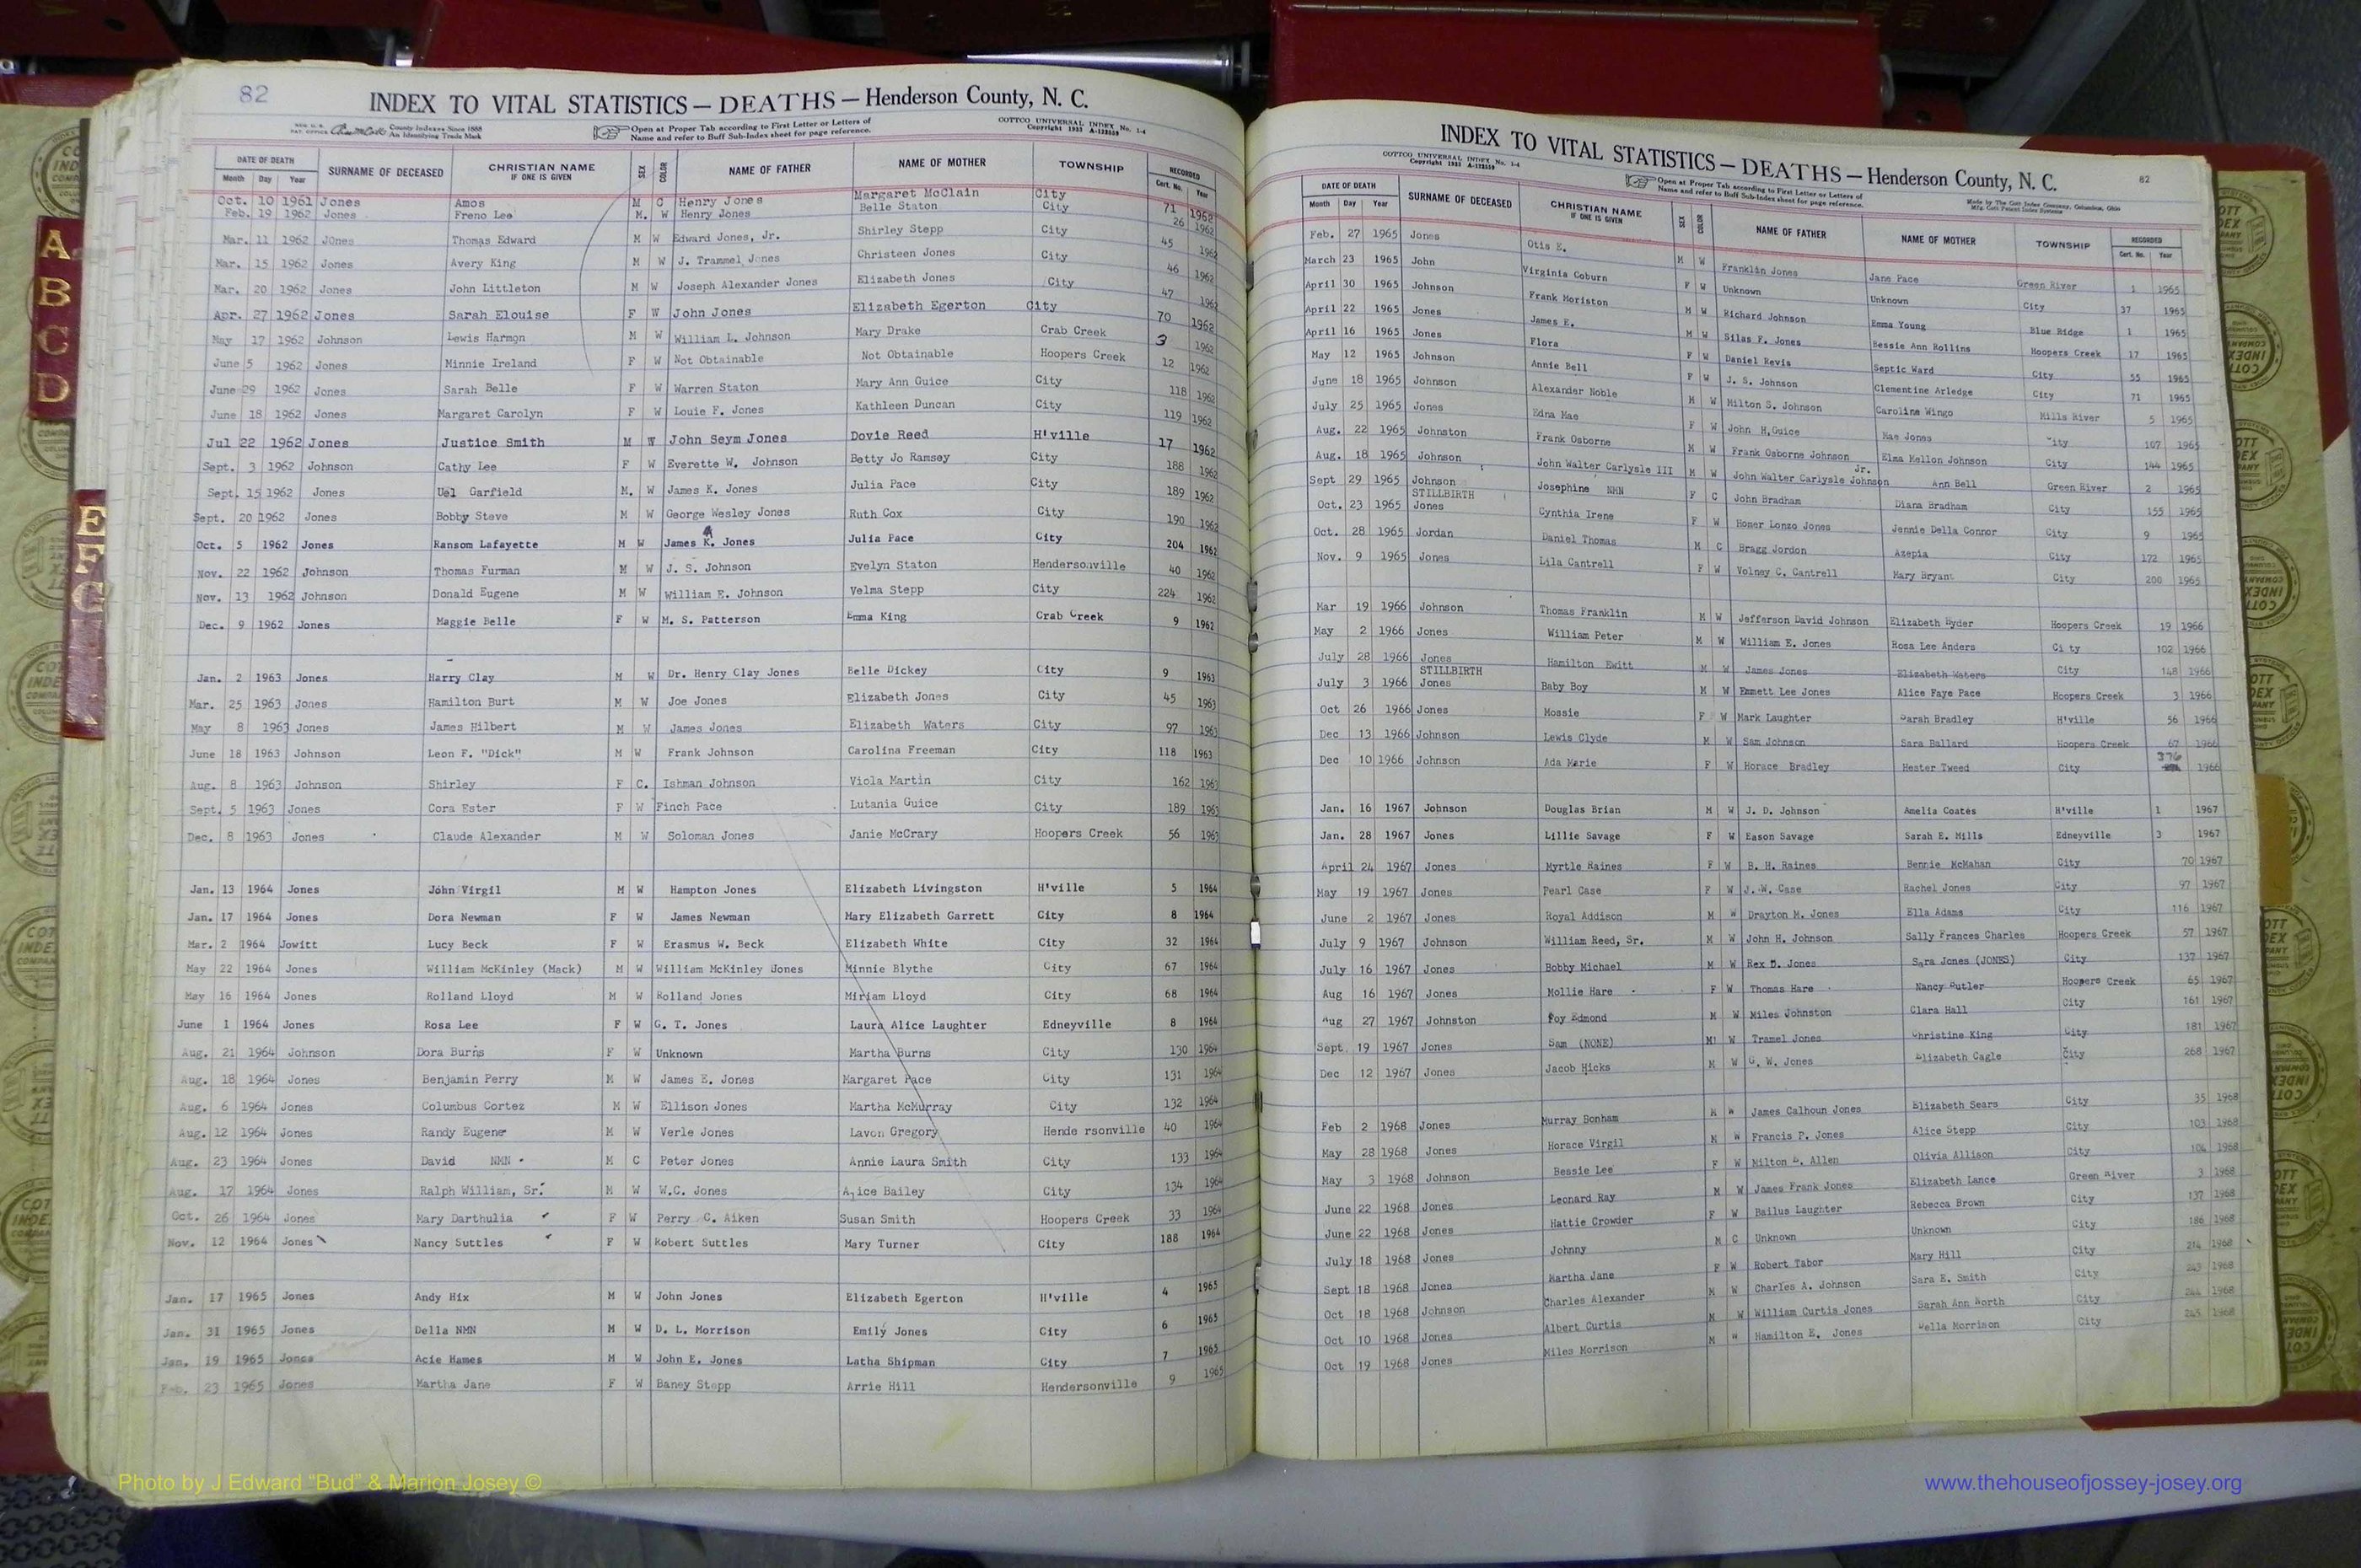 82
INDEX TO VITAL STATISTICS — DEATHS — Henderson County, N. C.
County Indexes Since 1888
An Identifying Trade Mark
Open at Proper Tab according to First Letter or Letters of
Name and refer to Buff Sub-Index sheet for page reference.
COTTCO UNIVERSAL INDEX No. 1-4
Copyright 1933 A-132559
DATE OF DEATH SURNAME OF DECEASED CHRISTIAN NAME IF ONE IS GIVEN SEX COLOR NAME OF FATHER NAME OF MOTHER TOWNSHIP RECORDED
Month Day Year Cert. No. Year
Oct. 10 1961 Jones Amos M C Henry Jones Margaret McClain City 71 1962
Feb. 19 1962 Jones Freno Lee M. W Henry Jones Belle Staton City 26 1962
Mar. 11 1962 Jones Thomas Edward M W Edward Jones, Jr. Shirley Stepp City 45 1962
Mar. 15 1962 Jones Avery King M W J. Trammel Jones Christeen Jones City 46 1962
Mar. 20 1962 Jones John Littleton M W Joseph Alexander Jones Elizabeth Jones City 47 1962
Apr. 27 1962 Jones Sarah Elouise F W John Jones Elizabeth Egerton City 70 1962
May 17 1962 Johnson Lewis Harmon M W William L. Johnson Mary Drake Crab Creek 3 1962
June 5 1962 Jones Minnie Ireland F W Not Obtainable Not Obtainable Hoopers Creek 12 1962
June 29 1962 Jones Sarah Belle F W Warren Staton Mary Ann Guice City 118 1962
June 18 1962 Jones Margaret Carolyn F W Louie F. Jones Kathleen Duncan City 119 1962
Jul 22 1962 Jones Justice Smith M W John Seym Jones Dovie Reed H'ville 17 1962
Sept. 3 1962 Johnson Cathy Lee F W Everette W. Johnson Betty Jo Ramsey City 188 1962
Sept. 15 1962 Jones Uel Garfield M. W James K. Jones Julia Pace City 189 1962
Sept. 20 1962 Jones Bobby Steve M W George Wesley Jones Ruth Cox City 190 1962
Oct. 5 1962 Jones Ransom Lafayette M W James K. Jones Julia Pace City 204 1962
Nov. 22 1962 Johnson Thomas Furman M W J. S. Johnson Evelyn Staton Hendersonville 40 1962
Nov. 13 1962 Johnson Donald Eugene M W William E. Johnson Velma Stepp City 224 1962
Dec. 9 1962 Jones Maggie Belle F W M. S. Patterson Emma King Crab Creek 9 1962
Jan. 2 1963 Jones Harry Clay M W Dr. Henry Clay Jones Belle Dickey City 9 1963
Mar. 25 1963 Jones Hamilton Burt M W Joe Jones Elizabeth Jones City 45 1963
May 8 1963 Jones James Hilbert M W James Jones Elizabeth Waters City 97 1963
June 18 1963 Johnson Leon F. "Dick" M W Frank Johnson Carolina Freeman City 118 1963
Aug. 8 1963 Johnson Shirley F C. Ishman Johnson Viola Martin City 162 1963
Sept. 5 1963 Jones Cora Ester F W Finch Pace Lutania Guice City 189 1963
Dec. 8 1963 Jones Claude Alexander M W Soloman Jones Janie McCrary Hoopers Creek 56 1963
Jan. 13 1964 Jones John Virgil M W Hampton Jones Elizabeth Livingston H'ville 5 1964
Jan. 17 1964 Jones Dora Newman F W James Newman Mary Elizabeth Garrett City 8 1964
Mar. 2 1964 Jowitt Lucy Beck F W Erasmus W. Beck Elizabeth White City 32 1964
May 22 1964 Jones William McKinley (Mack) M W William McKinley Jones Minnie Blythe City 67 1964
May 16 1964 Jones Rolland Lloyd M W Rolland Jones Miriam Lloyd City 68 1964
June 1 1964 Jones Rosa Lee F W G. T. Jones Laura Alice Laughter Edneyville 8 1964
Aug. 21 1964 Johnson Dora Burns F W Unknown Martha Burns City 130 1964
Aug. 18 1964 Jones Benjamin Perry M W James E. Jones Margaret Pace City 131 1964
Aug. 6 1964 Jones Columbus Cortez M W Ellison Jones Martha McMurray City 132 1964
Aug. 12 1964 Jones Randy Eugene M W Verle Jones Lavon Gregory Hende rsonville 40 1964
Aug. 23 1964 Jones David NMN M C Peter Jones Annie Laura Smith City 133 1964
Aug. 17 1964 Jones Ralph William, Sr. M W W.C. Jones Alice Bailey City 134 1964
Oct. 26 1964 Jones Mary Darthulia F W Perry C. Aiken Susan Smith Hoopers Creek 33 1964
Nov. 12 1964 Jones Nancy Suttles F W Robert Suttles Mary Turner City 188 1964
Jan. 17 1965 Jones Andy Hix M W John Jones Elizabeth Egerton H'ville 4 1965
Jan. 31 1965 Jones Della NMN M W D. L. Morrison Emily Jones City 6 1965
Jan. 19 1965 Jones Acie Hames M W John E. Jones Latha Shipman City 7 1965
Feb. 23 1965 Jones Martha Jane F W Baney Stepp Arrie Hill Hendersonville 9 1965
INDEX TO VITAL STATISTICS — DEATHS — Henderson County, N. C.
82
COTTCO UNIVERSAL INDEX No. 1-4
Copyright 1933 A-132559
Open at Proper Tab according to First Letter or Letters of
Name and refer to Buff Sub-Index sheet for page reference.
Made by The Cott Index Company, Columbus, Ohio
DATE OF DEATH SURNAME OF DECEASED CHRISTIAN NAME IF ONE IS GIVEN SEX COLOR NAME OF FATHER NAME OF MOTHER TOWNSHIP RECORDED
Month Day Year Cert. No. Year
Feb. 27 1965 Jones Otis E. M W Franklin Jones Jane Pace Green River 1 1965
March 23 1965 John Virginia Coburn F W Unknown Unknown City 37 1965
April 30 1965 Johnson Frank Moriston M W Richard Johnson Emma Young Blue Ridge 1 1965
April 22 1965 Jones James E. M W Silas F. Jones Bessie Ann Rollins Hoopers Creek 17 1965
April 16 1965 Jones Flora F W Daniel Revis Septic Ward City 55 1965
May 12 1965 Johnson Annie Bell F W J. S. Johnson Clementine Arledge City 71 1965
June 18 1965 Johnson Alexander Noble M W Milton S. Johnson Caroline Wingo Mills River 5 1965
July 25 1965 Jones Edna Mae F W John H.Guice Mae Jones City 107 1965
Aug. 22 1965 Johnston Frank Osborne M W Frank Osborne Johnson Elma Mellon Johnson City 144 1965
Aug. 18 1965 Johnson John Walter Carlysle III M W John Walter Carlysle Johnson Jr. Ann Bell Green River 2 1965
Sept 29 1965 Johnson Josephine NMN F C John Bradham Diana Bradham City 155 1965
STILLBIRTH
Oct. 23 1965 Jones Cynthia Irene F W Homer Lonzo Jones Jennie Della Connor City 9 1965
Oct. 28 1965 Jordan Daniel Thomas M C Bragg Jordon Azepia City 172 1965
Nov. 9 1965 Jones Lila Cantrell F W Volney C. Cantrell Mary Bryant City 200 1965
Mar 19 1966 Johnson Thomas Franklin M W Jefferson David Johnson Elizabeth Hyder Hoopers Creek 19 1966
May 2 1966 Jones William Peter M W William E. Jones Rosa Lee Anders Ci ty 102 1966
July 28 1966 Jones Hamilton Ewitt M W James Jones Elizabeth Waters City 148 1966
STILLBIRTH
July 3 1966 Jones Baby Boy M W Emmett Lee Jones Alice Faye Pace Hoopers Creek 3 1966
Oct 26 1966 Jones Mossie F W Mark Laughter Sarah Bradley H'ville 56 1966
Dec 13 1966 Johnson Lewis Clyde M W Sam Johnson Sara Ballard Hoopers Creek 67 1966
Dec 10 1966 Johnson Ada Marie F W Horace Bradley Hester Tweed City 376 1966
Jan. 16 1967 Johnson Douglas Brian M W J. D. Johnson Amelia Coates H'ville 1 1967
Jan. 28 1967 Jones Lillie Savage F W Eason Savage Sarah E. Mills Edneyville 3 1967
April 24 1967 Jones Myrtle Raines F W B. H. Raines Bennie McMahan City 70 1967
May 19 1967 Jones Pearl Case F W J. W. Case Rachel Jones City 97 1967
June 2 1967 Jones Royal Addison M W Drayton M. Jones Ella Adams City 116 1967
July 9 1967 Johnson William Reed, Sr. M W John H. Johnson Sally Frances Charles Hoopers Creek 57 1967
July 16 1967 Jones Bobby Michael M W Rex D. Jones Sara Jones (JONES) City 137 1967
Aug 16 1967 Jones Mollie Hare F W Thomas Hare Nancy Butler Hoopers Creek 65 1967
Aug 27 1967 Johnston Foy Edmond M W Miles Johnston Clara Hall City 161 1967
Sept. 19 1967 Jones Sam (NONE) M W Tramel Jones Christine King City 181 1967
Dec 12 1967 Jones Jacob Hicks M W G. W. Jones Elizabeth Cagle City 268 1967
Feb 2 1968 Jones Murray Bonham M W James Calhoun Jones Elizabeth Sears City 35 1968
May 28 1968 Jones Horace Virgil M W Francis P. Jones Alice Stepp City 103 1968
May 3 1968 Johnson Bessie Lee F W Milton Allen Olivia Allison City 104 1968
June 22 1968 Jones Leonard Ray M W James Frank Jones Elizabeth Lance Green River 3 1968
June 22 1968 Jones Hattie Crowder F W Bailus Laughter Rebecca Brown City 137 1968
July 18 1968 Jones Johnny M C Unknown Unknown City 186 1968
Sept 18 1968 Jones Martha Jane F W Robert Tabor Mary Hill City 214 1968
Oct 18 1968 Johnson Charles Alexander M W Charles A. Johnson Sara E. Smith City 243 1968
Oct 10 1968 Jones Albert Curtis M W William Curtis Jones Sarah Ann North City 244 1968
Oct 19 1968 Jones Miles Morrison M W Hamilton E. Jones Della Morrison City 245 1968
A
B
C
D
E
F
G
Photo by J Edward "Bud" & Marion Josey ©
www.thehouseofjossey-josey.org